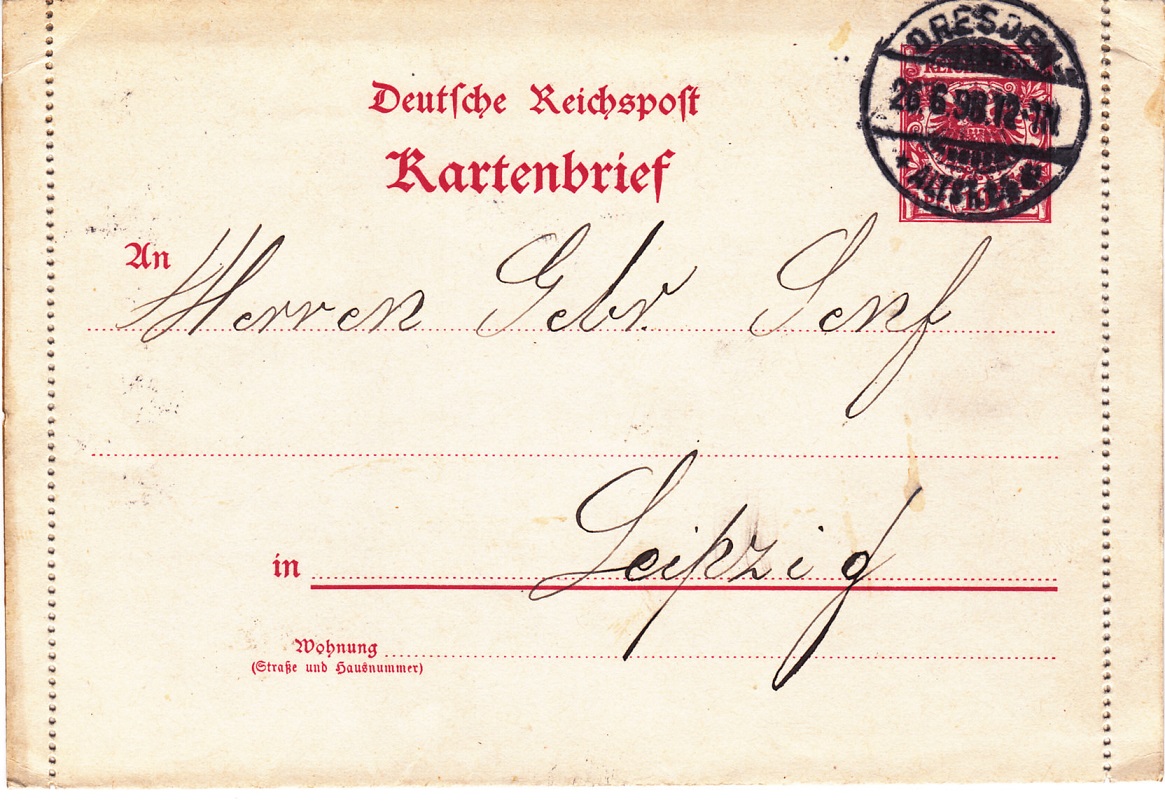 Deutsche Reichspost
Kartenbrief
DRESDEN-
26.6.98.12-1N.
* ALTST.
An Herren Gebr. Senf
in Leipzig
Wohnung
(Straße und Hausnummer)